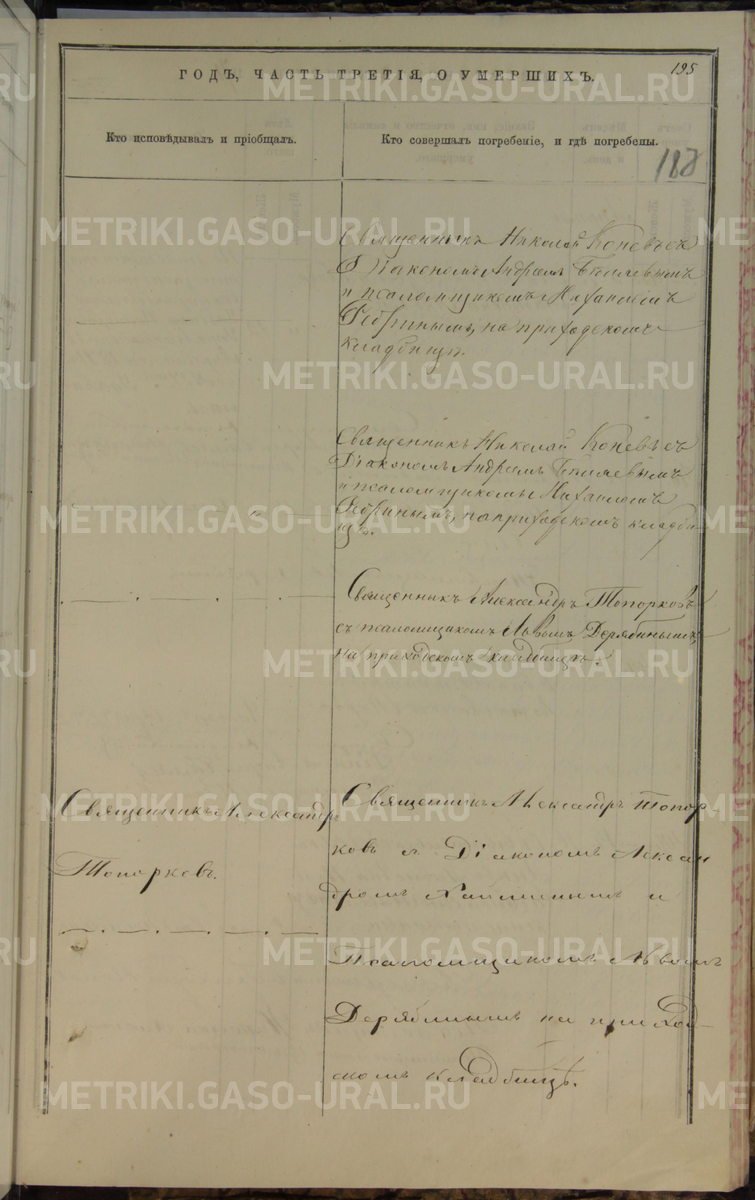 195
ГОДЪ, ЧАСТЬ ТРЕТІЯ, О УМЕРШИХЪ.
Кто исповѣдывалъ и пріобщалъ.
Кто совершалъ погребеніе, и гдѣ погребены.
188
Священникъ Николай Коневъ съ
Діакономъ Андреемъ Бѣляевымъ
и псаломщикомъ
на приходскомъ
кладбищѣ.
Священникъ Николай Коневъ съ
Діакономъ Андреемъ Бѣляевымъ
и псаломщикомъ
на приходскомъ кладби-
щѣ.
Священникъ Александръ Топорковъ
съ псаломщикомъ Львомъ Дерябинымъ,
на приходскомъ кладбищѣ.
Священникъ Александръ
Топорковъ.
Священникъ Александръ Топор
ковъ с Діакономъ Алексан
дромъ и
Псаломщикомъ Львомъ
Дерябинымъ на приход-
скомъ кладбищѣ.
METRIKI.GASO-URAL.RU